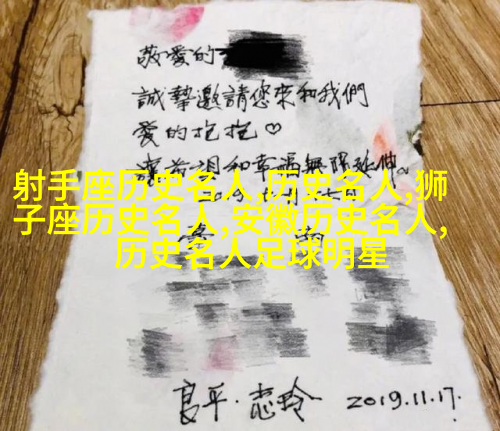 敬愛的
誠摯邀請您來和我們
愛的抱抱♡
射手座历史名人,历史名人,狮
子座历史名人,安徽历史名人,
历史名人足球明星
良平·志玲 2019.11.17.